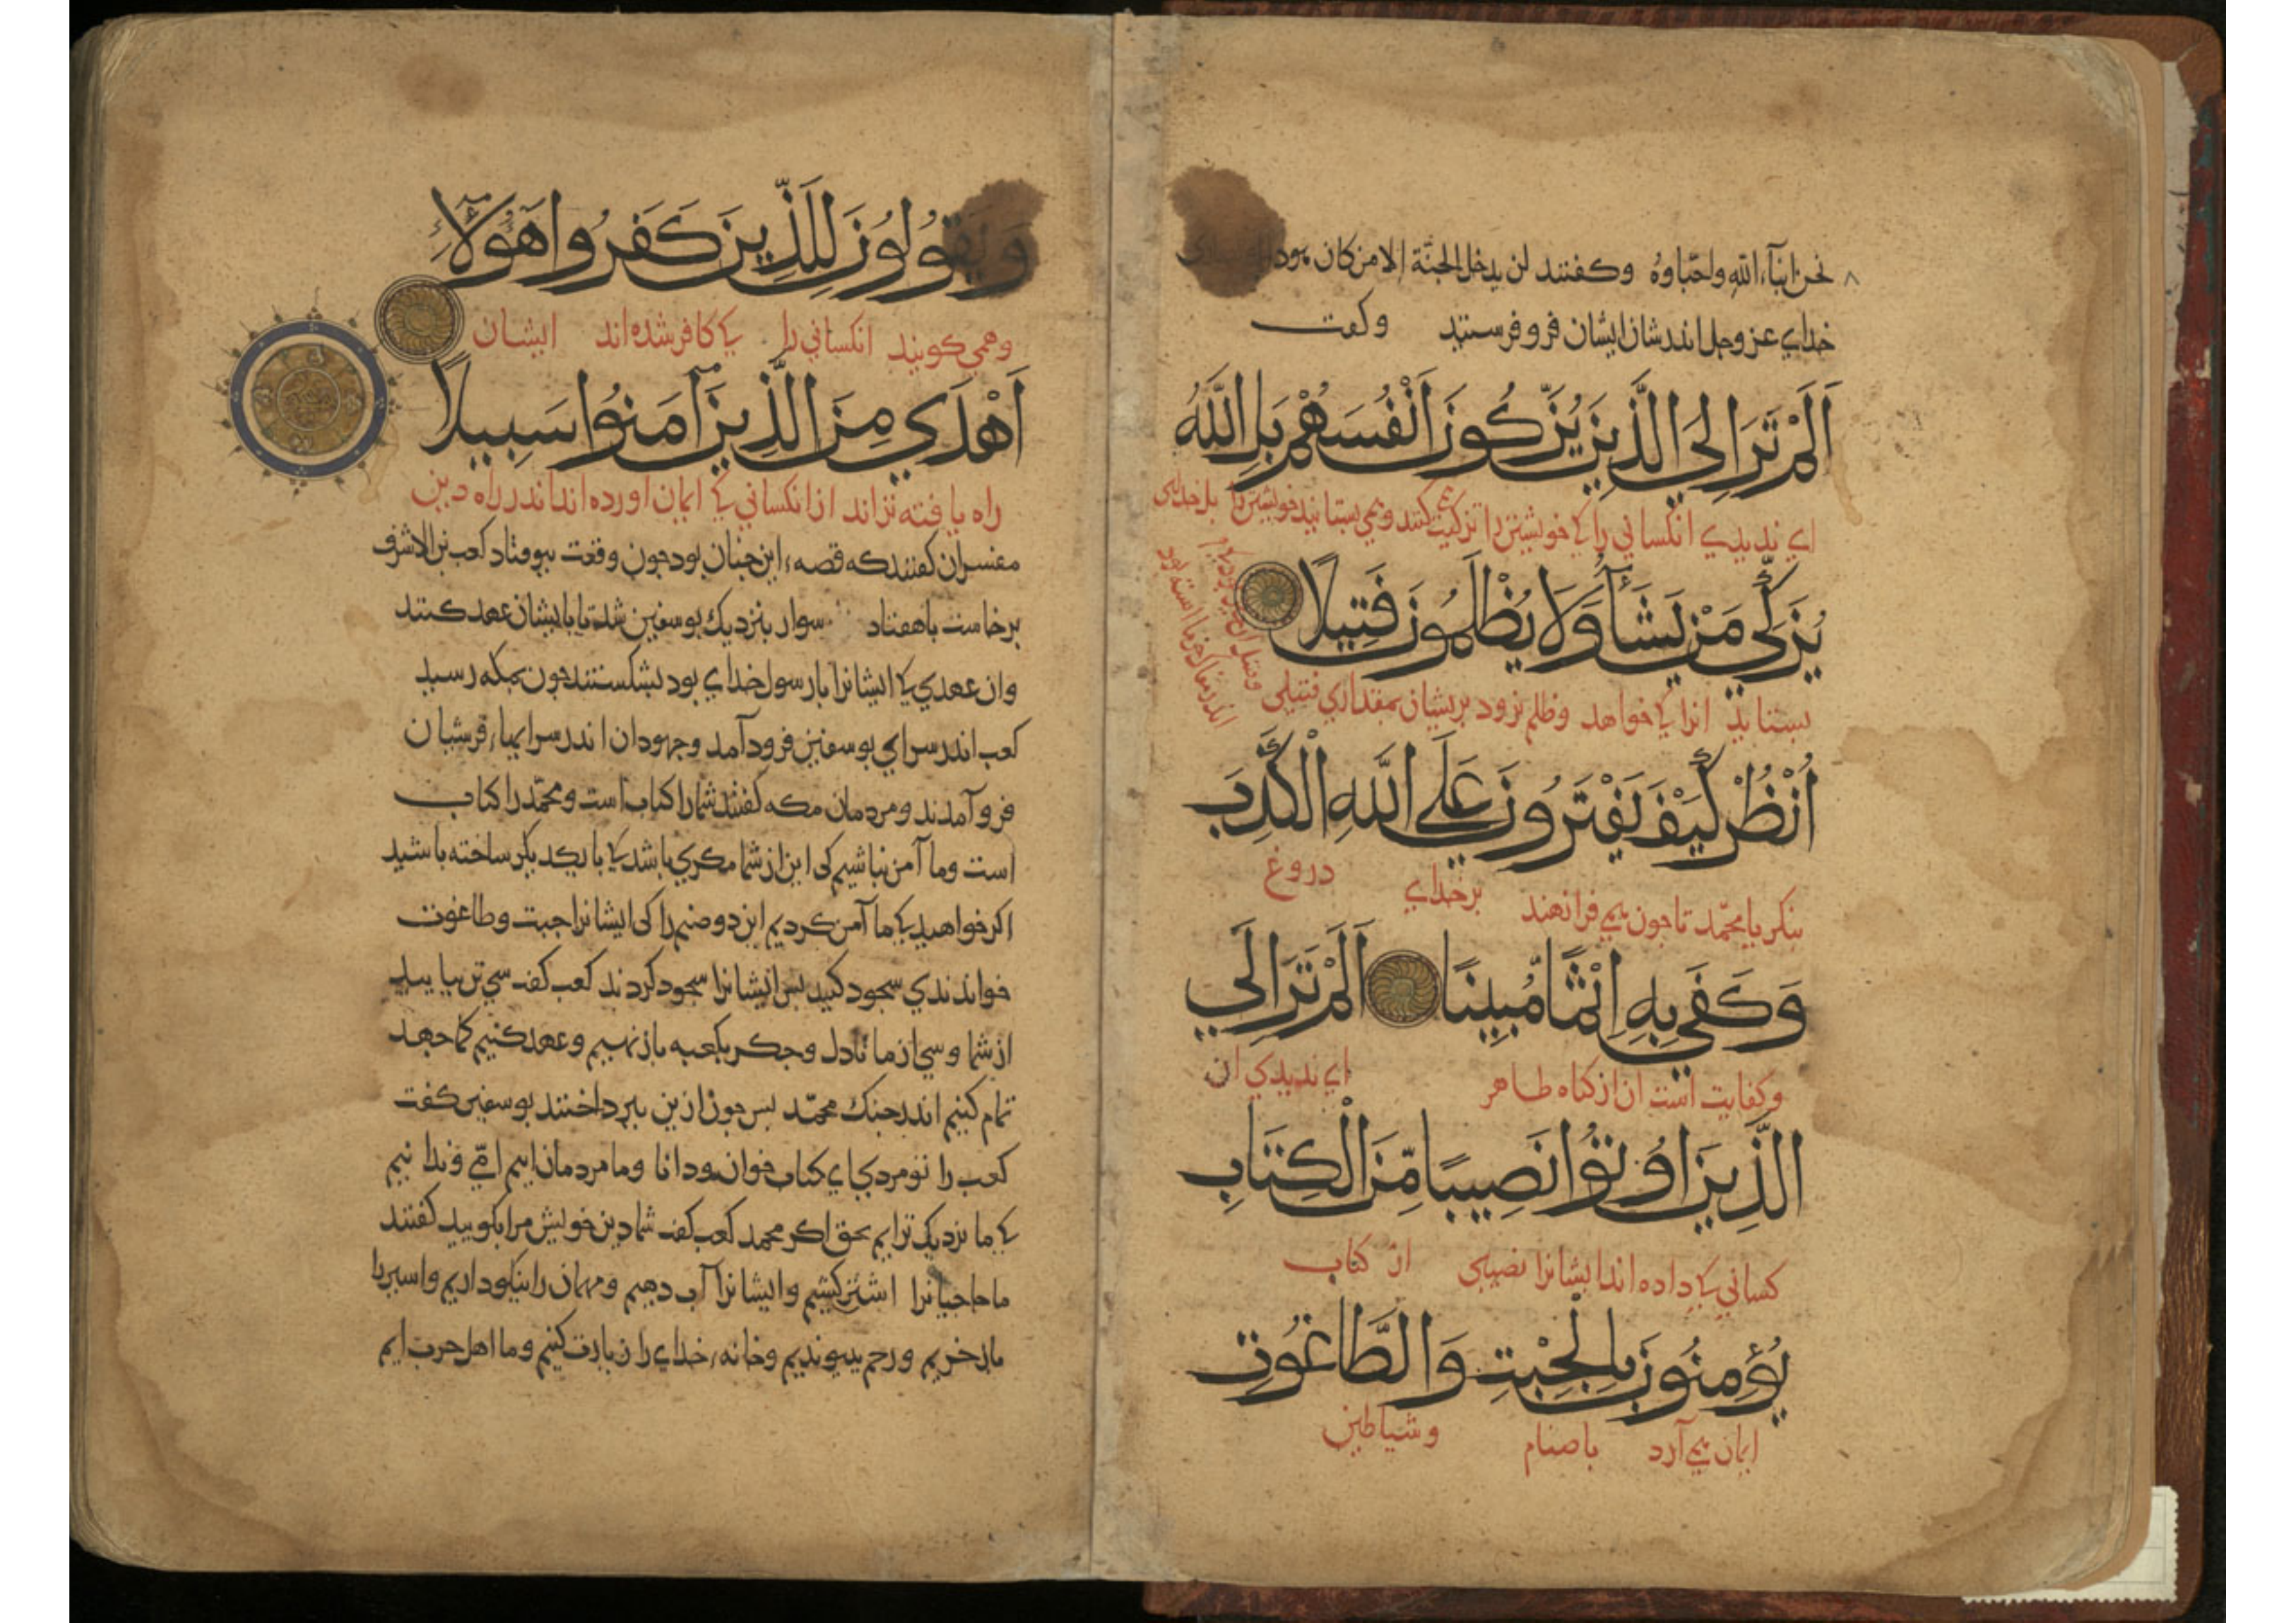 نحن ابنآء الله واحبّاوهُ وكفتند لن يدخل الجنّة الا من كان هودا
خداي عز وجل اندر شان ايشان فرو فرستيد وكفت
اَلَمْ تَرَ اِلَى الَّذِينَ يُزَكُّونَ اَنْفُسَهُمْ بَلِ اللَّهُ
اي نديدي انكساني را كى خويشتن را تزكيت كنند و همي بستايند خويشتن را بل خداى
يُزَكِّي مَنْ يَشَآءُ وَلَا يُظْلَمُونَ فَتِيلًا
بستايد انرا كى خواهد وظلم نرود بريشان بمقداري فتيلى
اُنْظُرْ كَيْفَ يَفْتَرُونَ عَلَي اللَّهِ الْكَذِبَ
بنكر يا محمّد تا جون همي فرا نهند بر خداي دروغ
وَكَفَي بِهِ اِثْمًا مُبِينًا اَلَمْ تَرَ اِلَي
وكفايت است ان از كناه ظاهر اي نديدي ان
الَّذِينَ اُوتُوْا نَصِيبًا مِّنَ الْكِتَابِ
كساني كى داده اند ايشانرا نصيبى از كتاب
يُؤْمِنُونَ بِالْجِبْتِ وَالطَّاغُوتِ
ايمان همي آرد باصنام وشياطين
وَيَقُولُونَ لِلَّذِينَ كَفَرُوا هَؤُلَآءِ
وهمي كويند انكساني را كى كافر شده اند ايشان
اَهْدَي مِنَ الَّذِينَ آمَنُوا سَبِيلًا
راه يافته تراند از انكساني كى ايمان اورده اند اندر راه دين
مفسران كفتند كه قصهء اين جنان بود جون وقعت بيوفتاد كعب بن الاشرف
برخاست با هفتاد سوار بنزديك بوسفين شد تا با ايشان عهد كنند
وان عهدي كى ايشانرا با رسول خداي بود بشكستند جون بمكه رسيد
كعب اندر سراي بوسفين فرود آمد وجهودان اندر سرايهاء قرشيان
فرو آمدند ومردمان مكه كفتند شما را كتاب است ومحمّد را كتاب
است وما آمن نباشيم كى اين از شما مكري باشد كى با يكديكر ساخته باشيد
اكر خواهيد كى ما آمن كرديم اين دو صنم را كى ايشانرا جبت وطاغوت
خواندندي سجود كنيد بس ايشانرا سجود كردند كعب كفت سي تن بياييد
از شما وسي از ما تا دل وجكر بكعبه باز نهيم وعهد كنيم كما جهد
تمام كنيم اندر جنك محمّد بس جون ازين ببرداختند بوسفين كفت
كعب را تو مردي اي كتاب خوان ودانا وما مردمان ايم امّي وندانيم
كى ما نزديك ترايم بحق اكر محمد كعب كفت شما دين خويش مرا بكوييد كفتند
ما حاجيانرا اشتر كشيم وايشانرا آب دهيم ومهمان را نيكو داريم واسير را
باز خريم ورحم بيونديم وخانهء خداي را زيارت كنيم وما اهل حرب ايم